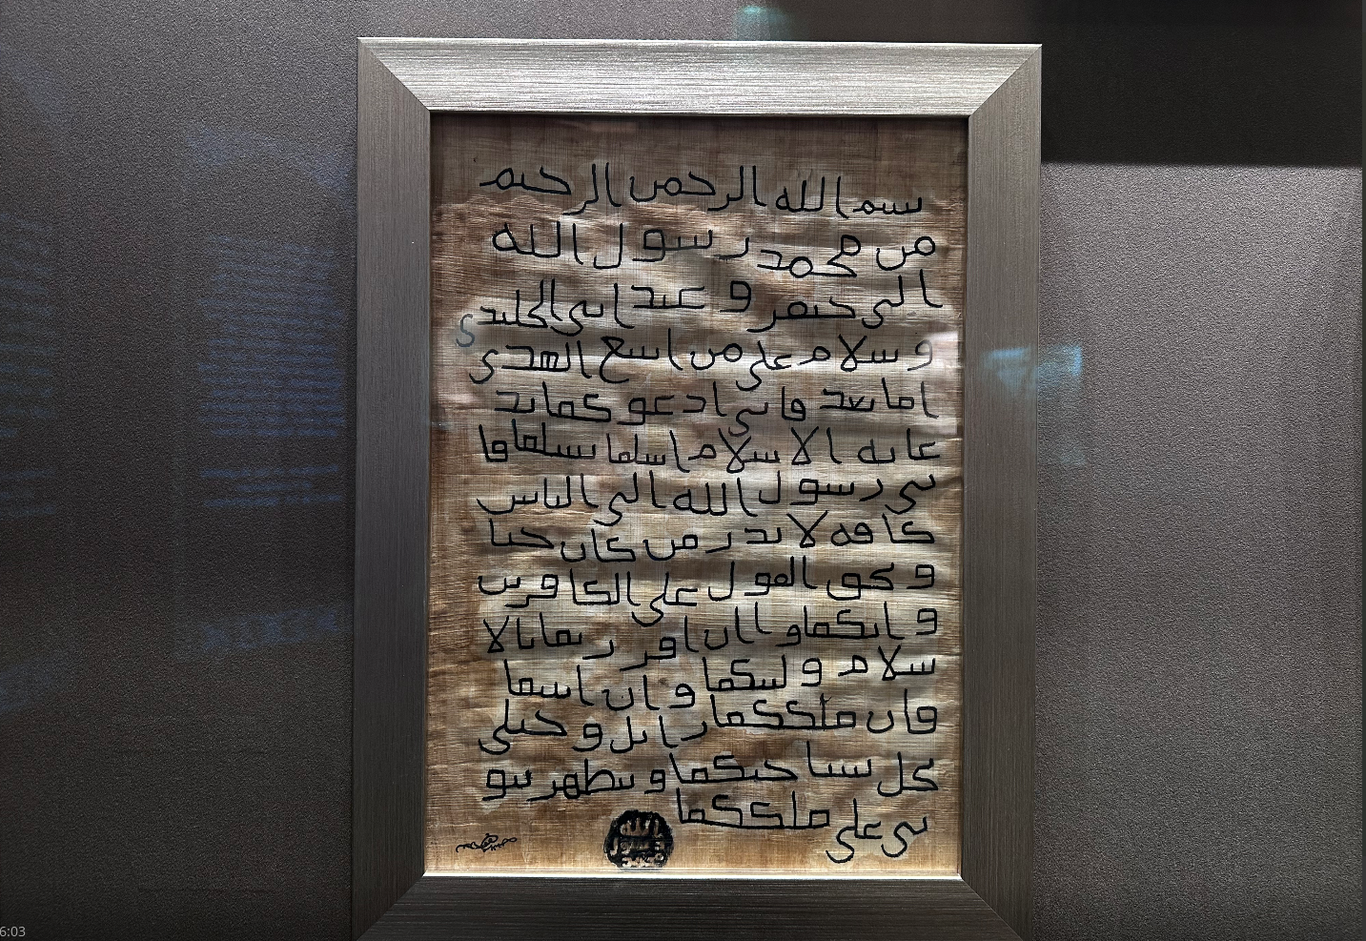 بسم الله الرحمن الرحيم
من محمد رسول الله
الى جيفر وعبد ابني الجلندى
وسلام على من اتبع الهدى
اما بعد فاني ادعوكما بد
عايه الاسلام اسلما تسلما فا
ني رسول الله الى الناس
كافه لانذر من كان حيا
ويحق القول على الكافرين
وانكما و اان اقررتما بالا
سلام وليتكما وان ابيتما
فان ملككما زايل وخيلي
تحل بساحتكما وتظهر نبو
تي على ملككما
الله
رسول
محمد
6:03